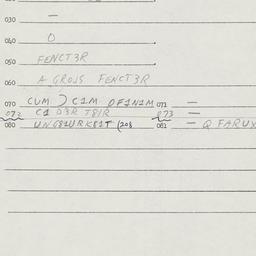 030 —
040 O
050 FENCT3R
060 A GROUS FENCT3R
070 CUM ) C1M OF1N1M 071 —
072 C1 D3R T81R 073 —
080 081 — Q FARUX